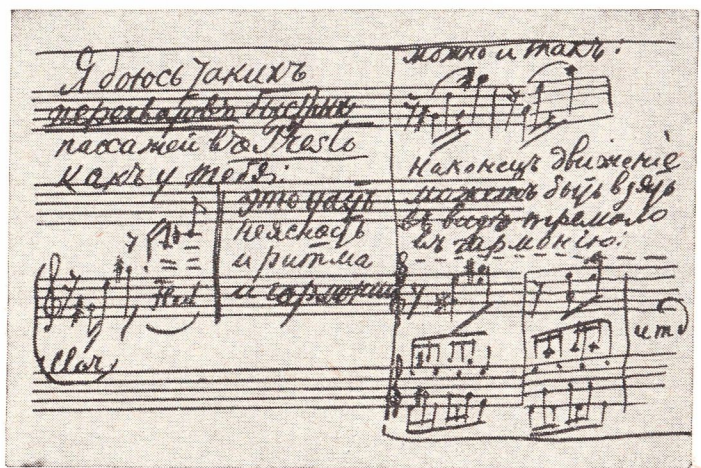 Я боюсь такихъ
перехватовъ быстрыхъ
пассажей въ Presto
какъ у тебя:
это
неясность
и ритма
и гармоніи
Clar
можно и такъ:
Наконецъ движеніе
можетъ быть взято
въ видѣ тремоло
въ гармонію.
и т д